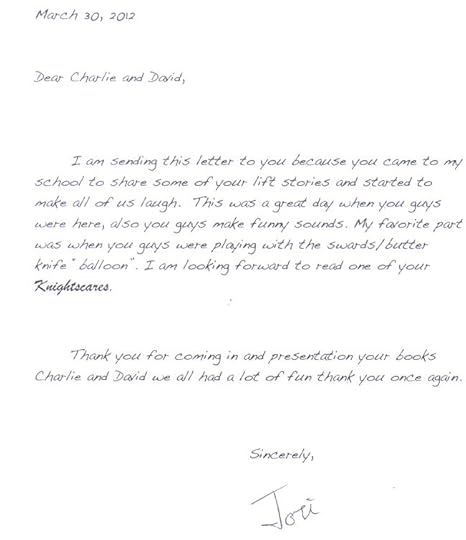 March 30, 2012
Dear Charlie and David,
I am sending this letter to you because you came to my
school to share some of your lift stories and started to
make all of us laugh. This was a great day when you guys
were here, also you guys make funny sounds. My favorite part
was when you guys were playing with the swards/butter
knife "balloon". I am looking forward to read one of your
Knightscares.
Thank you for coming in and presentation your books
Charlie and David we all had a lot of fun thank you once again.
Sincerely,
Tori